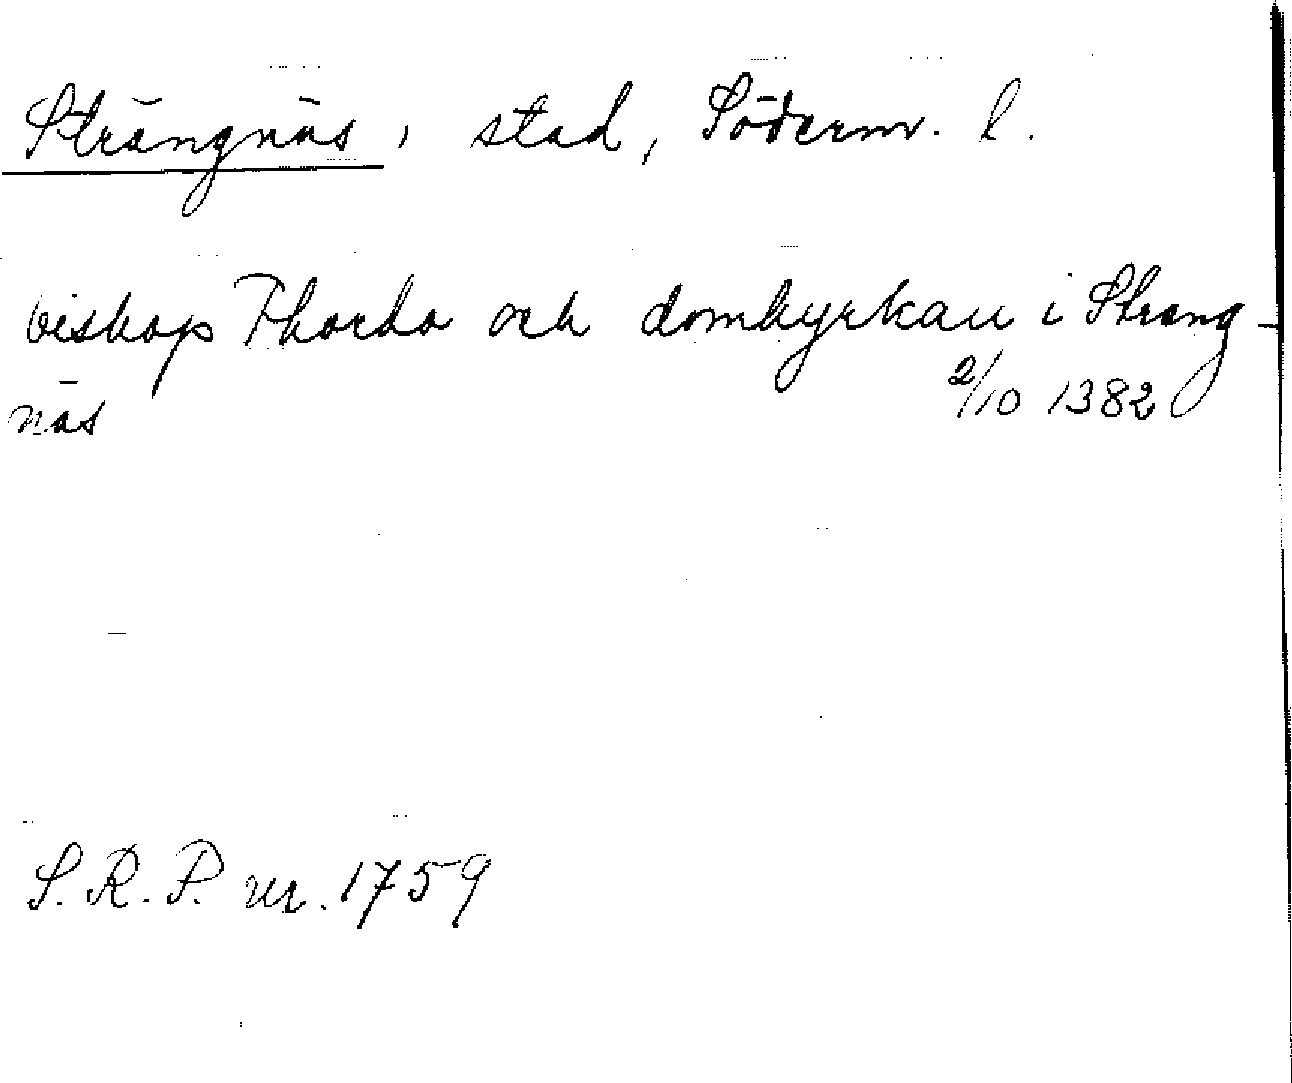 Strängnäs, stad, Söderm. l.
biskop Thordo och domkyrkan i Strang-
näs 2/10 1382
S. R. P. nr. 1759